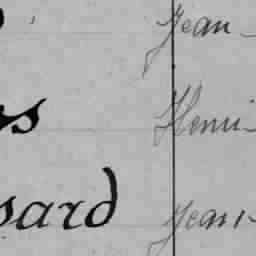 Jean -
s Henri -
sard Jean -